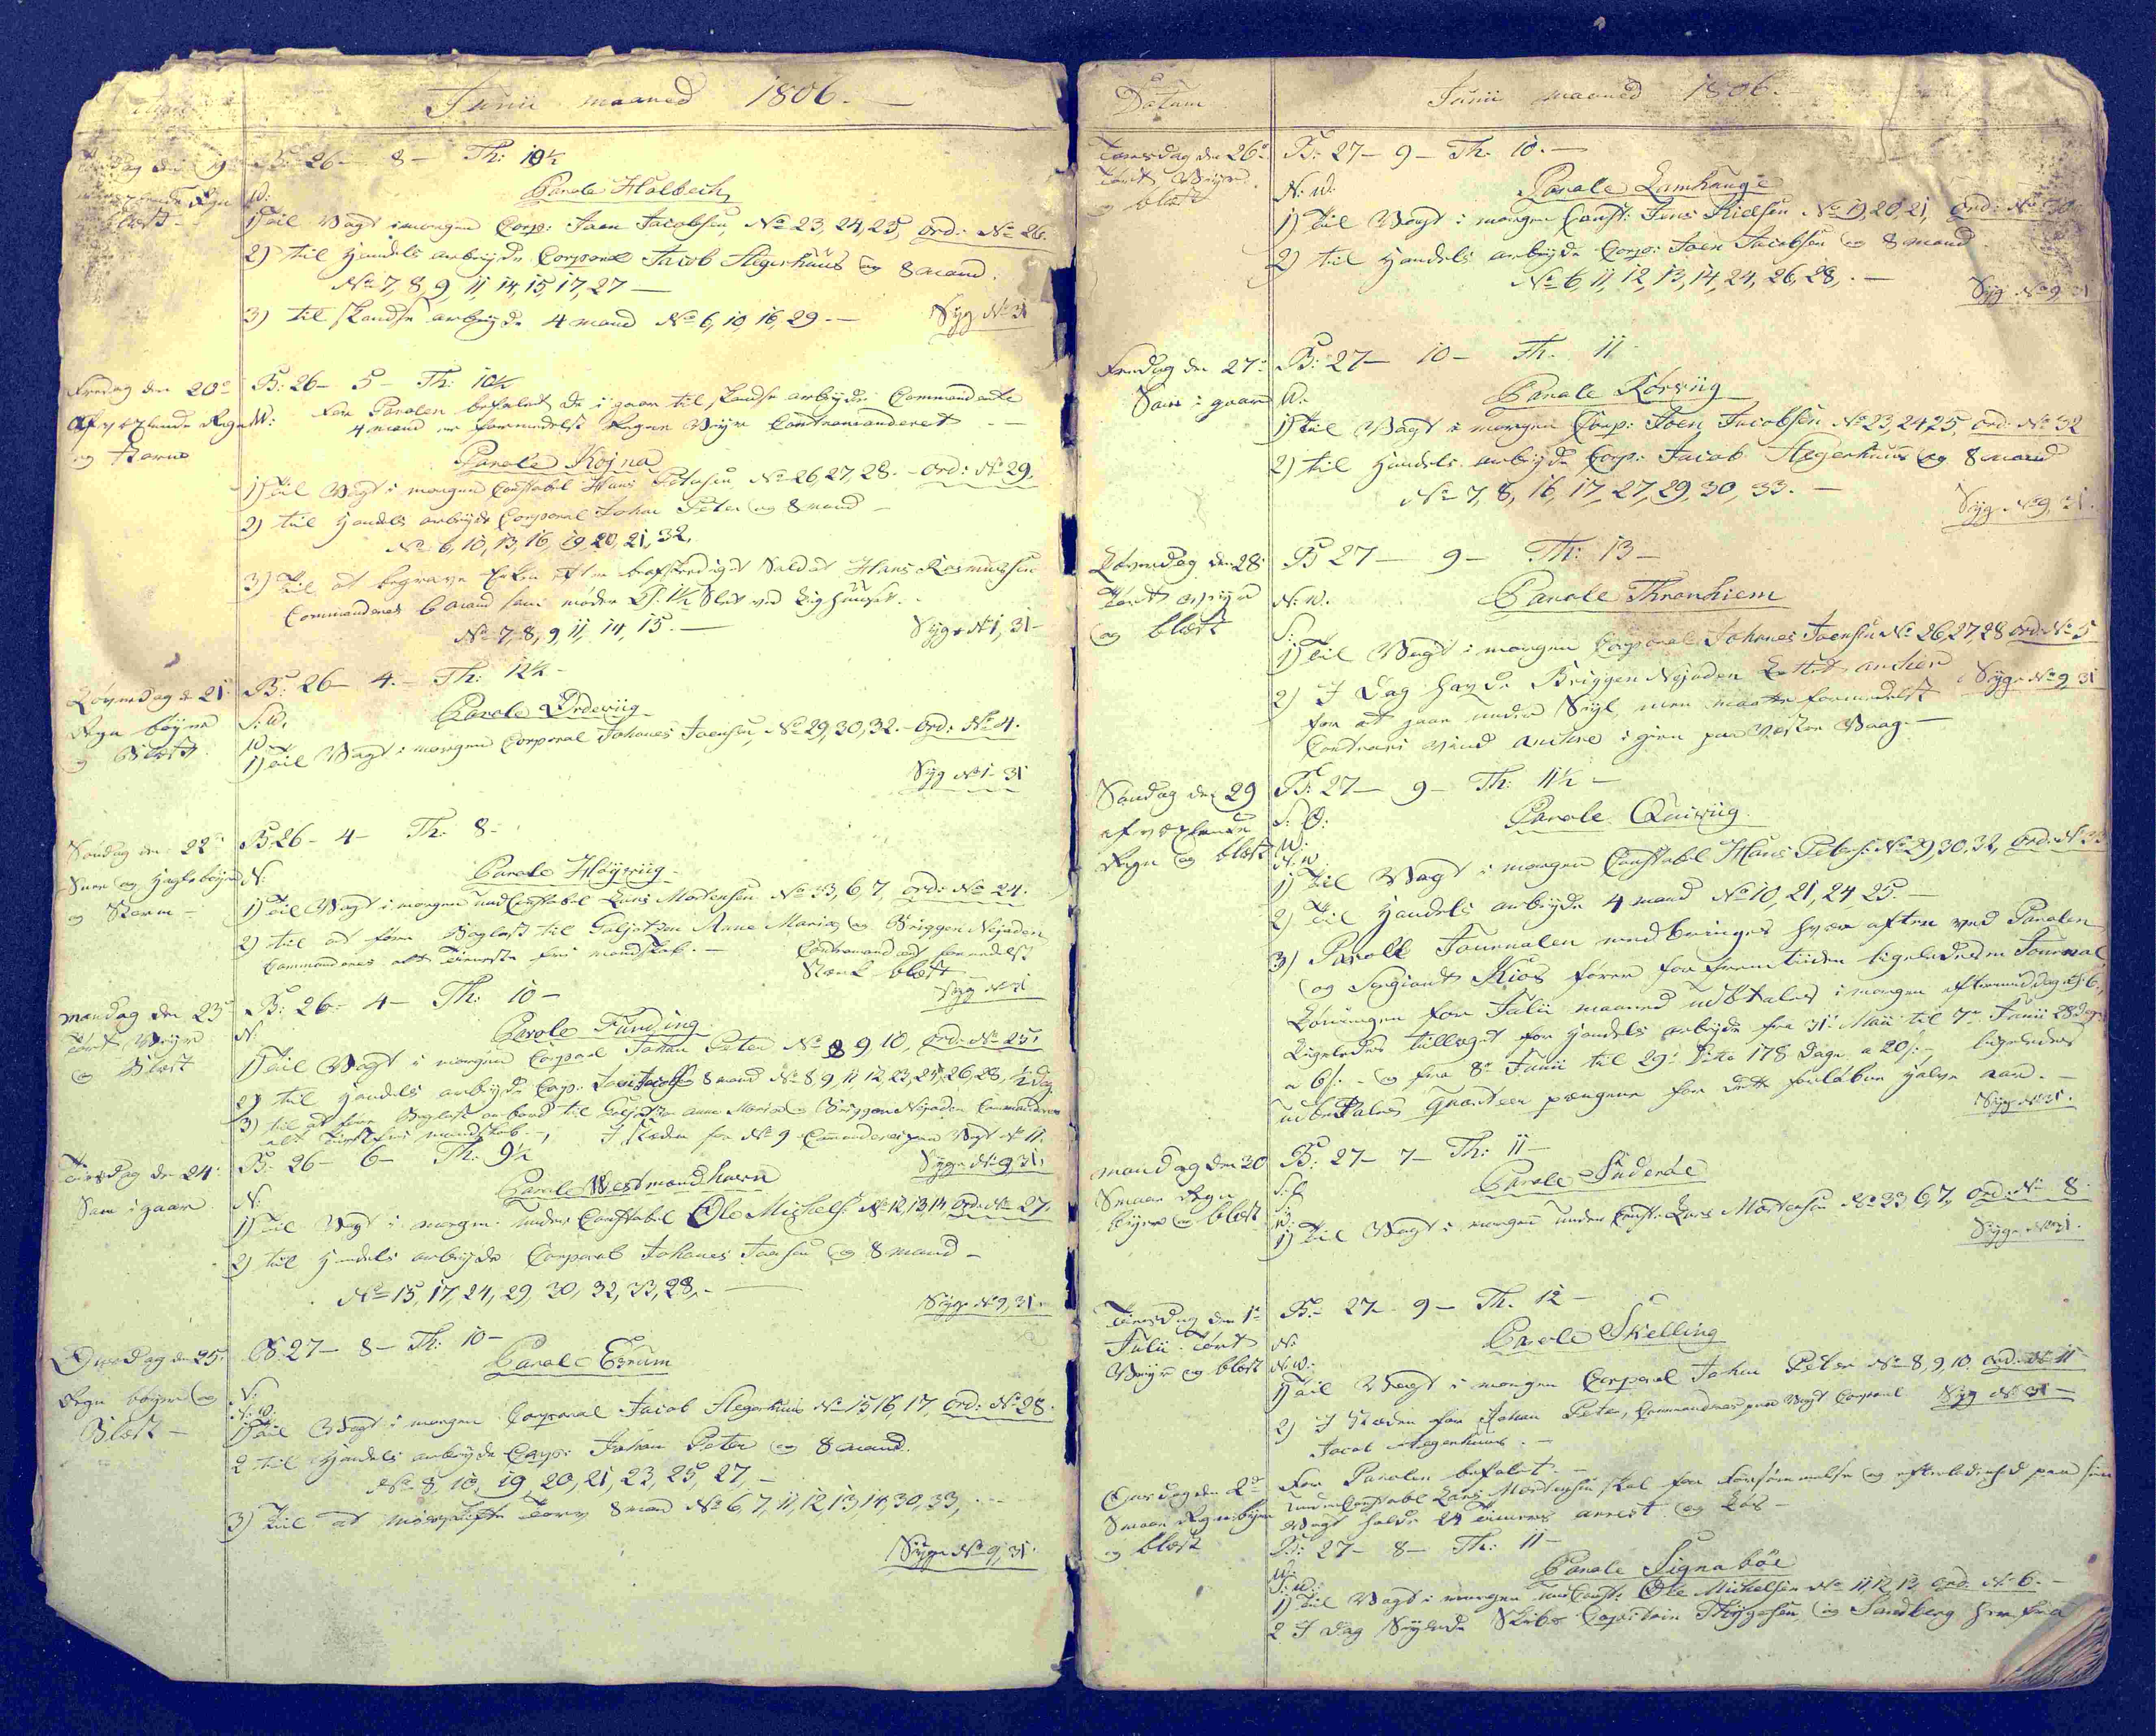 Junii maaned 1806.
B: 26 - 8 - Th: 10½
W:
Parole Holbech
1) Til Vagt i morgen Corp: Joen Jacobsen No 23, 24, 25, Ord: No 26.
2) til Handels arbeyde Corporal Jacob Stegerhuus og 8 mand.
No 7, 8, 9, 11, 14, 15, 17, 27 —
3) til skandse arbeyde 4 mand No 6, 10, 16, 29. —
Syg No 31
Fredag den 20de
Afvexlende Regn
og Storm
B: 26 - 5 - Th: 10½
W: For Parolen befalet, de i gaar til skandse arbeyde Commanderte
4 mand er formedelst Regn Veyr Contramanderet —
Parole Kojna
1) Til Vagt i morgen Constabel Hans Petersen No 26, 27, 28. - Ord: No 29.
2) til Handels arbeyde Corporal Johan Peter og 8 mand —
No 6, 10, 13, 16, 19, 20, 21, 32.
3) Til at begrave Enken efter beafskediget Soldat Hans Rasmussen
Commanderes 6 mand som møder Kl. 1½ Slet ved Lighuuset.
No 7, 8, 9, 11, 14, 15. —
Syge No 1, 31 -
Løverdag d 21
Regn bøyer
og Blæst
B: 26 - 4. - Th: 12½ -
S:W.
W.
Parole Ordeviig
1) Til Vagt i morgen Corporal Johanes Joensen, No 29, 30, 32. - Ord: No 4.
Syg No 1 - 31
Søndag den 22de
Snee og Hagle bøyer
og Storm -
B: 26 - 4 - Th: 8 -
N:
Parole Høyviig
1) Til Vagt i morgen und Constabel Lars Mortensen No 33, 6, 7, Ord: No 24.
2) til at føre Baglast til Galjotzen Anne Maria og Briggen Nejaden
Commanderes alt Tieneste frie mandskab. — Contramanderet formedelst
Stærk blæst —
Syg No 31
Mandag den 23de
Tørt Veyr
og Blæst
B: 26 - 4 - Th: 10 -
N:
Parole Funding
1) Til Vagt i morgen Corporal Johan Peter No 8, 9, 10, Ord: No 25.
2) til Handels arbeyde Corp: Joen Jacobsen 8 mand No 8, 9, 11, 12, 23, 25, 26, 28, ½ dag
3) til at føre Baglast ombord til Galjotzen Anne Maria og Briggen Nejaden Commanderes
alt tienstfri mandskab. — I steden for No 9 Commanderes paa Vagt No 11.
Syge No 9, 31.
Tiirsdag den 24:
Som i gaar
B: 26 - 6 - Th: 9½
N:
Parole Westmandhavn
1) Til Vagt i morgen under Constabel Ole Michels: No 12, 13, 14 Ord: No 27.
2) til Handels arbeyde Corporal Johanes Joensen og 8 mand —
No 15, 17, 24, 29, 30, 32, 33, 28, -
Syge No 9, 31.
Onsdag den 25.
Regn bøyer og
Blæst —
B: 27 - 8 - Th: 10 -
N:
N:W:
Parole Errum
1) Til Vagt i morgen Corporal Jacob Stegerhuus No 15, 16, 17, Ord: No 28.
2 til Handels arbeyde Corp: Johan Peter og 8 mand.
No 8, 10, 19, 20, 21, 23, 25, 27, -
3) Til at Torv 8 mand No 6, 7, 11, 12, 13, 14, 30, 33,
Syge No 9, 31.
Datum
Junii maaned 1806.
Torsdag den 26de
Tørt Veyr
og blæst
B: 27 - 9 - Th: 10. —
N:W.
Parole Lamhauge
1) Til Vagt i morgen Const: Jens Nielsen No 19, 20, 21, Ord: No 30
2) til Handels arbeyde Corp: Joen Jacobsen og 8 mand
No 6, 11, 12, 13, 14, 24, 26, 28, —
Syg No 9, 31
Fredag den 27de
Som i gaar
B: 27 - 10 - Th: 11
W.
Parole Kørviig
1) Til Vagt i morgen Corp: Joen Jacobsen No 23, 24, 25, Ord: No 32
2) til Handels arbeyde Corp: Jacob Stegerhuus og 8 mand
No 7, 8, 16, 17, 27, 29, 30, 33. —
Syge No 9, 31.
Løverdag den 28:
Tørt Veyr
og blæst
B 27 - 9 - Th: 13 -
N:W.
S:
Parole Thronhiem
1) Til Vagt i morgen Corporal Johanes Joensen No 26, 27, 28 Ord: No 5
2) I Dag havde Briggen Nejaden Lettet ancker
Syge No 9, 31
for at gaae under Seyl, men maatte formedelst
Contrari vind anckre igien paa Vester Vaag. —
Søndag den 29
afvexlende
Regn og blæst
B: 27 - 9 - Th: 11½ -
S:O:
W:
N:W
Parole Quiviig
1) Til Vagt i morgen Constabel Hans Peters: No 29, 30, 32, Ord: No 33
2) Til Handels arbeyde 4 mand No 10, 21, 24, 25. —
3) Parole Journalen medbringes hver aften ved Parolen
og Sergiant Kios fører for fremtiiden ligeledes en Journal
Lønningen for Julii maaned udbetales i morgen eftermiddag Kl. 6.,
Ligeledes tillæget for Handels arbeyde fra 31: Maii til 7de Junii 28 dage
a 6 s. - og fra 8de Junii til 29: Dito 178 Dage a 20 s. - ligeledes
udbetales quarteer pengene for dette forløbne halve aar. —
Syg No 31.
Mandag den 30
Smaae Regn
bøyer og blæst
B: 27 - 7 - Th: 11 —
W:
Parole Suderöe
1) Til Vagt i morgen under Const: Lars Mortensen No 33, 6, 7, Ord: No 8.
Syge No 31.
Tiirsdag den 1te
Julii Tørt
Veyr og blæst
B: 27 - 9 - Th: 12 —
N:
N:W:
Parole Skelling
1) Til Vagt i morgen Corporal Johan Peter No 8, 9, 10. Ord: No 11
2) I Steden for Johan Peter, Commanderes paa Vagt Corporal
Syg No 31 —
Jacob Stegerhuus. —
Onsdag den 2de
Smaae Regnbøyer
og blæst
For Parolen befalet. —
Under Constabel Lars Mortensen skal for Forsømmelse og efterladenhed paa sin
Vagt holde 24 Timers arrest og Løs —
B: 27 - 8 - Th: 11 —
W:
S:W:
Parole Signabøe
1) Til Vagt i morgen und Const: Ole Michelsen No 11, 12, 13, Ord: No 6. —
2 I Dag Seylede Skibs Capitain Thygesen og Sandberg her fra